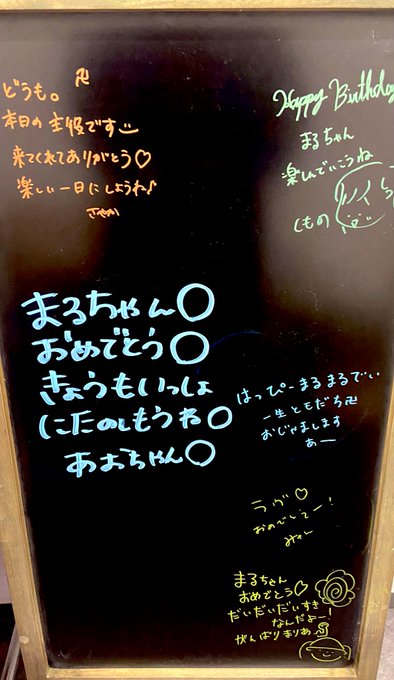 どうも。 卍
本日の主役です
来てくれてありがとう♡
楽しい一日にしようね♪
さやか
Happy Birthday
まるちゃん
楽しんでいこうね
しもの
まるちゃん○
おめでとう○
きょうもいっしょ
にたのしもうね○
あおちゃん○
はっぴーまるまるでい
一生ともだち卍
おじゃまします
あー
ラヴ♡
おめでとうー!
みゃん
まるちゃん
おめでとう♡
だいだいだいすき
なんだよー!
がんばりまりあ